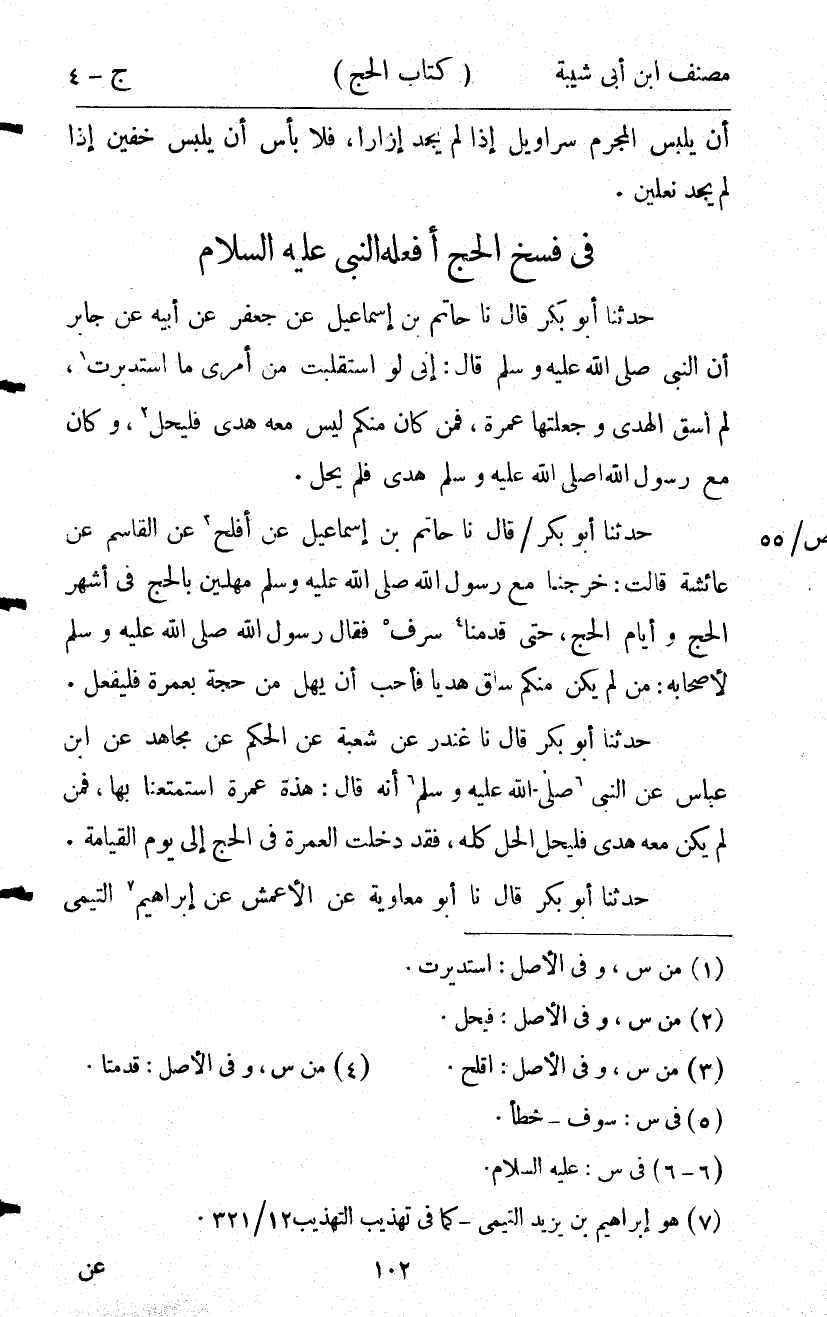 مصنف ابن أبى شيبة ( كتاب الحج ) ج - ٤
أن يلبس المجرم سراويل إذا لم يجد إزارا، فلا بأس أن يلبس خفين إذا
لم يجد نعلين .
فى فسخ الحج أ فعله النبى عليه السلام
حدثنا أبو بكر قال نا حاتم بن إسماعيل عن جعفر عن أبيه عن جابر
أن النبى صلى الله عليه و سلم قال : إنى لو استقلبت من أمرى ما استدبرت١ ،
لم أسق الهدى و جعلتها عمرة ، فمن كان منكم ليس معه هدى فليحل٢ ، و كان
مع رسول الله صلى الله عليه و سلم هدى فلم يحل .
حدثنا أبو بكر / قال نا حاتم بن إسماعيل عن أفلح٣ عن القاسم عن
ص/ ٥٥
عائشة قالت : خرجنا مع رسول الله صلى الله عليه وسلم مهلين بالحج فى أشهر
الحج و أيام الحج ، حتى قدمنا٤ سرف٥ فقال رسول الله صلى الله عليه و سلم
لأصحابه : من لم يكن منكم ساق هديا فأحب أن يهل من حجة بعمرة فليفعل .
حدثنا أبو بكر قال نا غندر عن شعبة عن الحكم عن مجاهد عن ابن
عباس عن النبى ٦صلى الله عليه و سلم٦ أنه قال : هذة عمرة استمتعنا بها ، فمن
لم يكن معه هدى فليحل الحل كله ، فقد دخلت العمرة فى الحج إلى يوم القيامة .
حدثنا أبو بكر قال نا أبو معاوية عن الأعمش عن إبراهيم٧ التيمى
(١) من س ، و فى الأصل : استديرت .
(٢) من س ، و فى الأصل : فيحل .
(٣) من س ، و فى الأصل : اقلح . (٤) من س ، و فى الأصل : قدمتا .
(٥) فى س : سوف - خطأ .
(٦ - ٦) فى س : عليه السلام .
(٧) هو إبراهيم بن يزيد التيمى - كما فى تهذيب التهذيب ١٢/ ٣٢١ .
١٠٢ عن